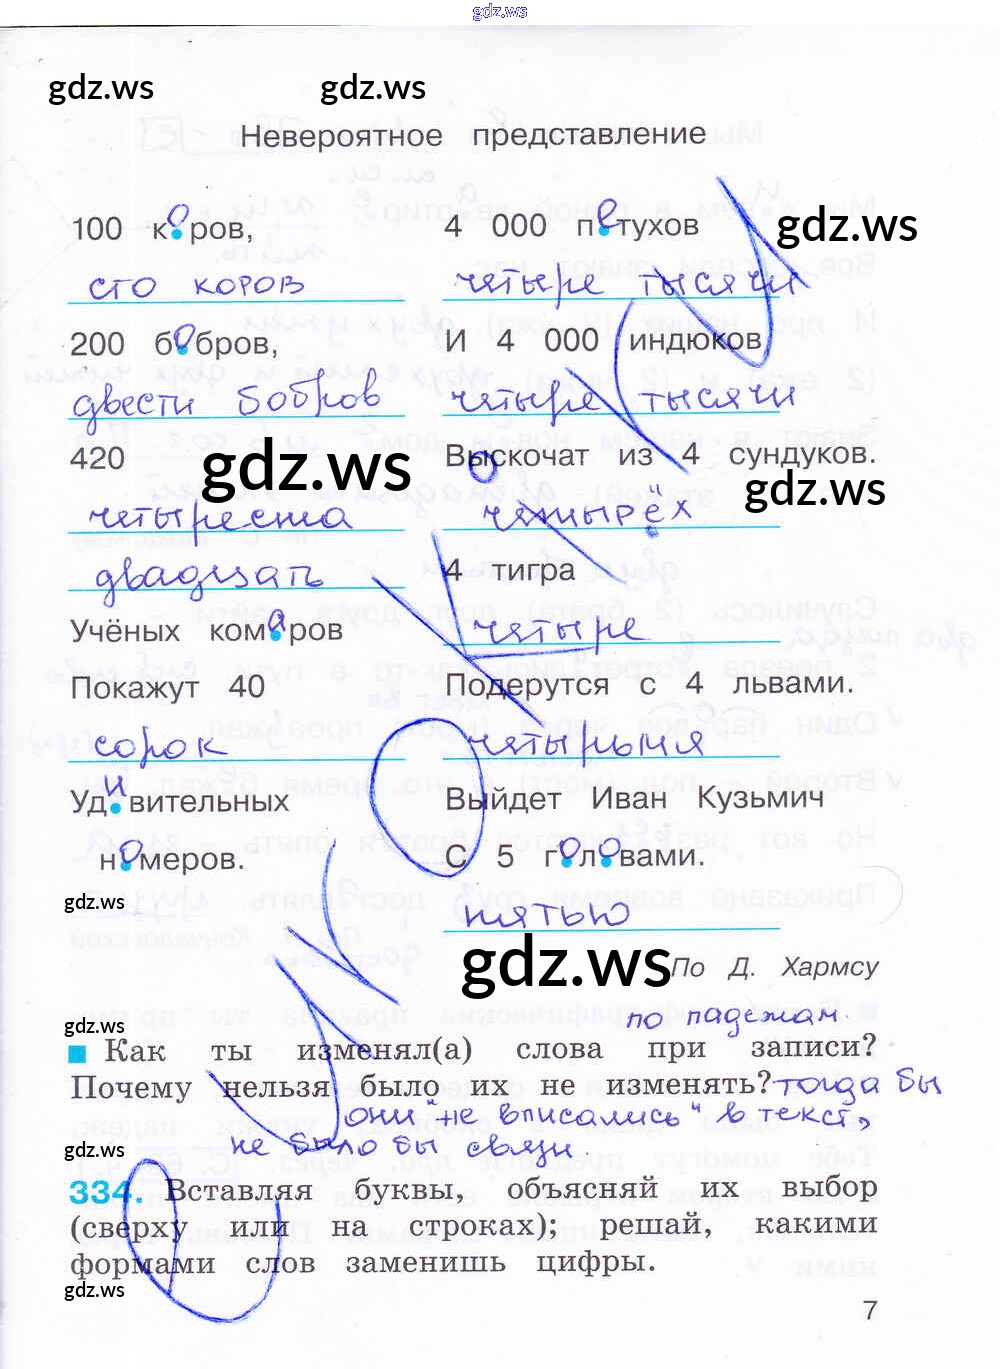 gdz.ws
gdz.ws gdz.ws
Невероятное представление
100 коров,
сто коров
200 бобров,
двести бобров
420
gdz.ws
четыреста
двадцать
Учёных комаров
Покажут 40
сорок
Удивительных
номеров.
gdz.ws
4 000 петухов
gdz.ws
четыре тысячи
И 4 000 индюков
четыре тысячи
Выскочат из 4 сундуков.
gdz.ws
четырёх
4 тигра
четыре
Подерутся с 4 львами.
четырьмя
Выйдет Иван Кузьмич
С 5 головами.
пятью
gdz.ws
По Д. Хармсу
gdz.ws
по падежам.
Как ты изменял(а) слова при записи?
Почему нельзя было их не изменять? тогда бы
они "не вписались" в текст,
gdz.ws
не было бы связи.
334. Вставляя буквы, объясняй их выбор
(сверху или на строках); решай, какими
формами слов заменишь цифры.
gdz.ws
7